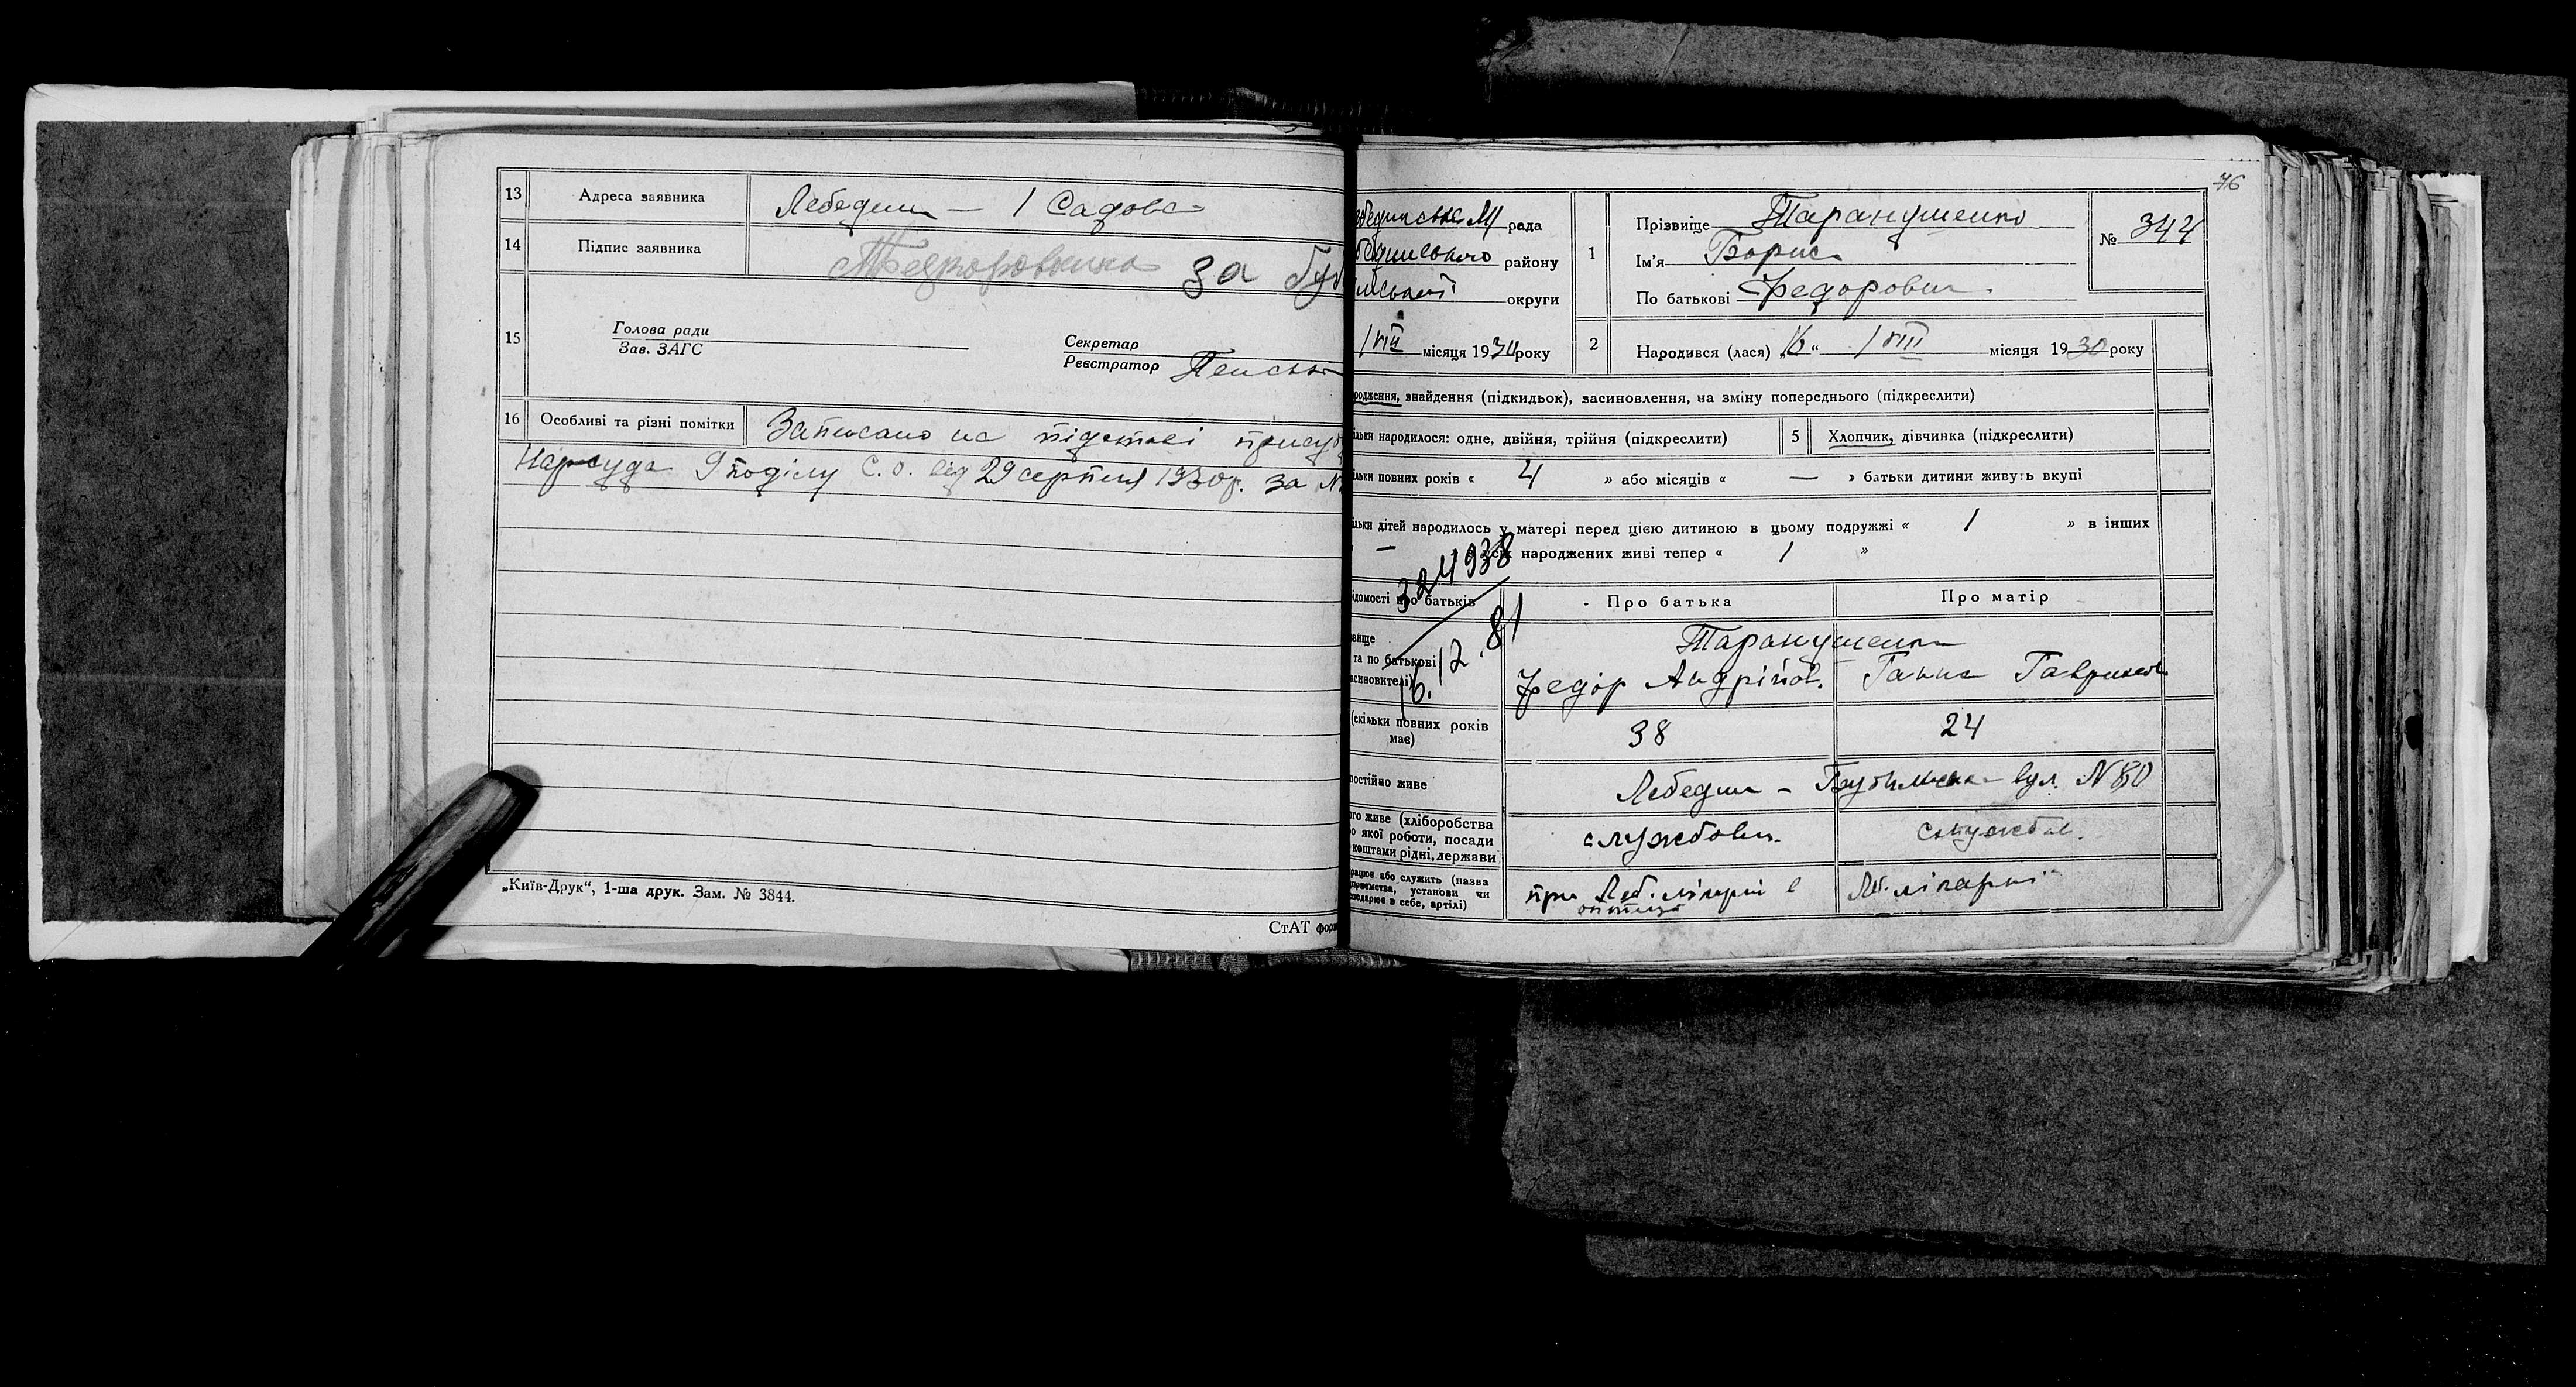 13 Адреса заявника Лебедин — 1 Садова
14 Підпис заявника за
15 Голова ради
Зав. ЗАГС
Секретар
Реєстратор
16 Особливі та різні помітки Записано на підставі присуд
Нарсуда 9 поділу С. О. від 29 серпня 1930 р. за №
„Київ-Друк“, 1-ша друк. Зам. № 3844.
СтАТ фор
76
рада
району
округи
1 VIII місяця 1930 року
1 Прізвище Таранушенко
Ім'я Борис
По батькові Федорович
№ 344
2 Народився (лася) „16“ VIII місяця 1930 року
родження, знайдення (підкидьок), засиновлення, на зміну попереднього (підкреслити)
льки народилося: одне, двійня, трійня (підкреслити) 5 Хлопчик, дівчинка (підкреслити)
льки повних років « 4 » або місяців « — » батьки дитини живуть вкупі
льки дітей народилось у матері перед цією дитиною в цьому подружжі « 1 » в інших
— усіх народжених живі тепер « 1 »
324938
16.12.81
ідомості про батьків Про батька Про матір
вище Таранушенко
та по батькові
асиновителі) Федір Андрійов. Ганна
(скільки повних років
має) 38 24
постійно живе Лебедин – вул. № 80
ого живе (хліборобства
о якої роботи, посади
коштами рідні, держави службовец. службов.
рацює або служить (назва
установи чи
подарює в себе, артілі) при Леб. лікарні Леб. лікарні